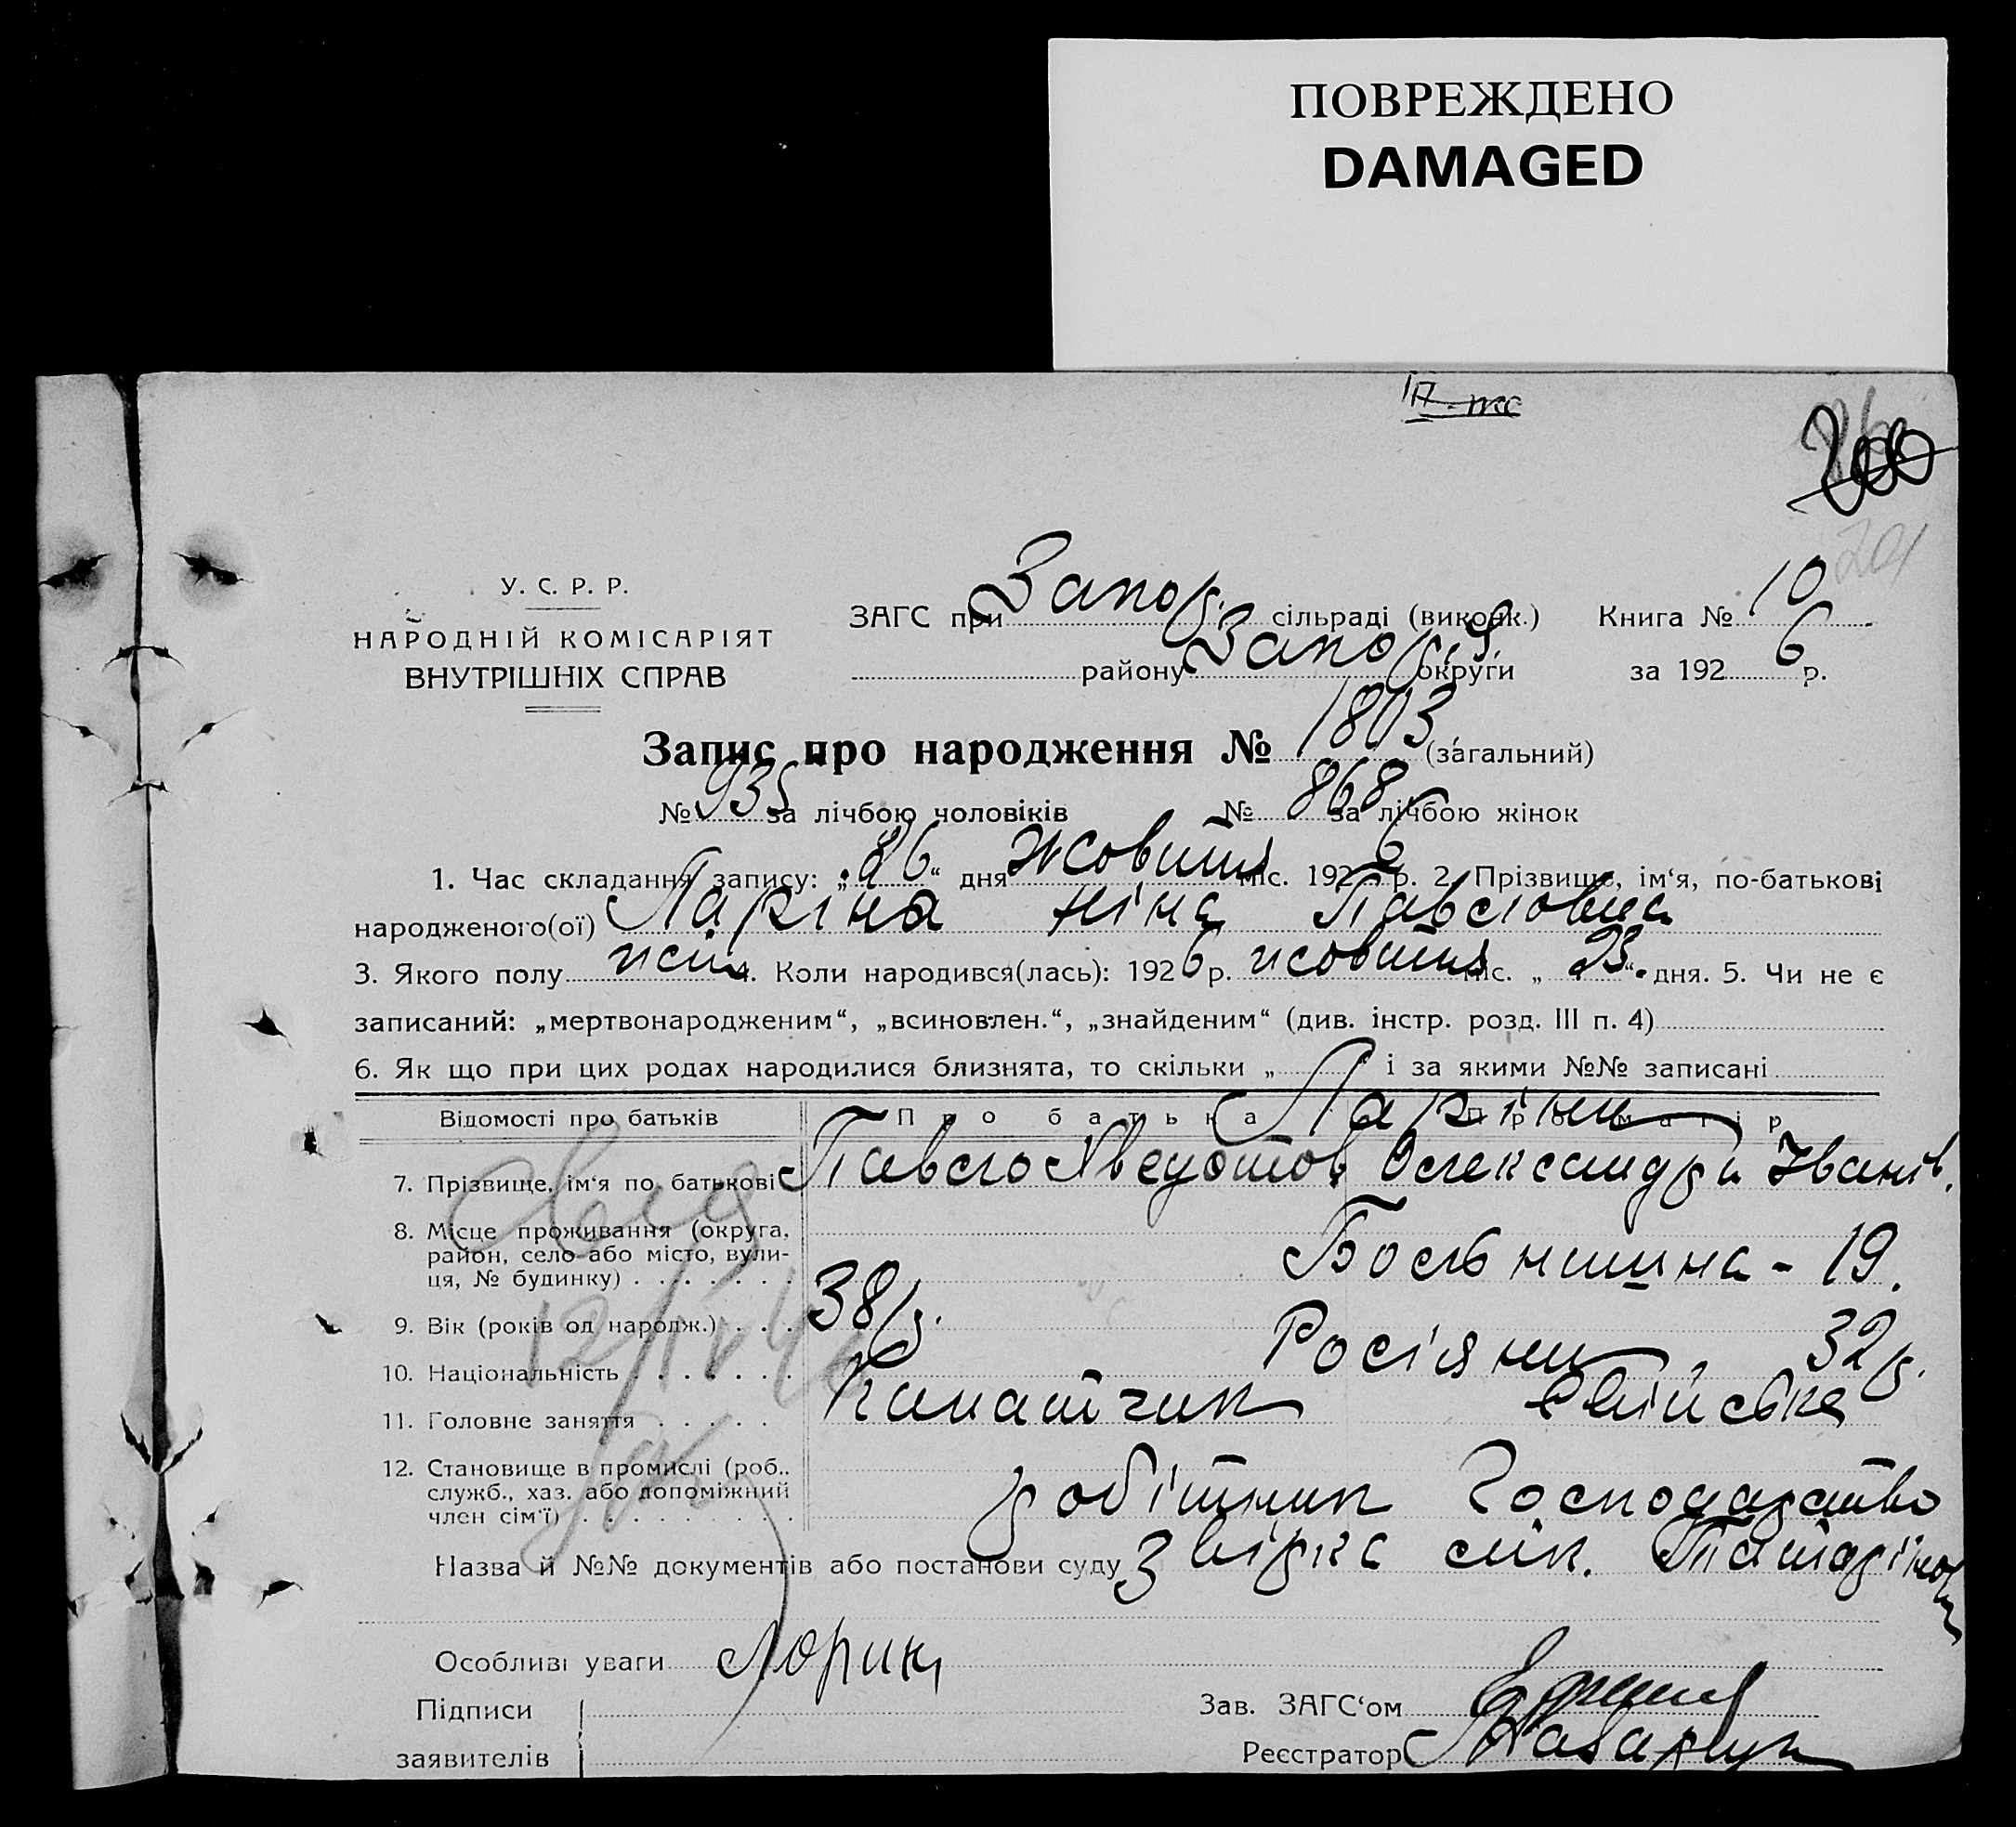 ПОВРЕЖДЕНО
DAMAGED
200
201
У. С. Р. Р.
НАРОДНІЙ КОМІСАРІЯТ
ВНУТРІШНІХ СПРАВ
ЗАГС при Запор. сільраді (виконк.) Книга № 10
району Запор. округи за 1926 р.
Запис про народження № 1803 (загальний)
№ 935 за лічбою чоловіків № 868 за лічбою жінок
1. Час складання запису: „26“ дня жовтня міс. 1926 р. 2. Прізвище, ім‘я, по-батькові
народженого(ої) Ларіна Ніна Павловна
3. Якого полу жін. 4. Коли народився(лась): 1926 р. жовтня міс. „23“ дня. 5. Чи не є
записаний: „мертвонародженим“, „всиновлен.“, „знайденим“ (див. інстр. розд. III п. 4)
6. Як що при цих родах народилися близнята, то скільки „ і за якими №№ записані
Відомості про батьків Про батька Про матір
Ларіни
7. Прізвище, ім‘я по батькові Павло Федотов Олександра Іванів.
8. Місце проживання (округа,
район, село або місто, вули-
ця, № будинку) Больнична - 19.
9. Вік (років од народж.) 38 р. 32 р.
10. Національність Росіяни
11. Головне заняття Канатчик Хатійське
12. Становище в промислі (роб.,
служб., хаз. або допоміжний
член сім‘ї) робітник Господарство
Назва й №№ документів або постанови суду Звірка лік.
Особливі уваги
Підписи
заявителів
Зав. ЗАГС‘ом
Реєстратор